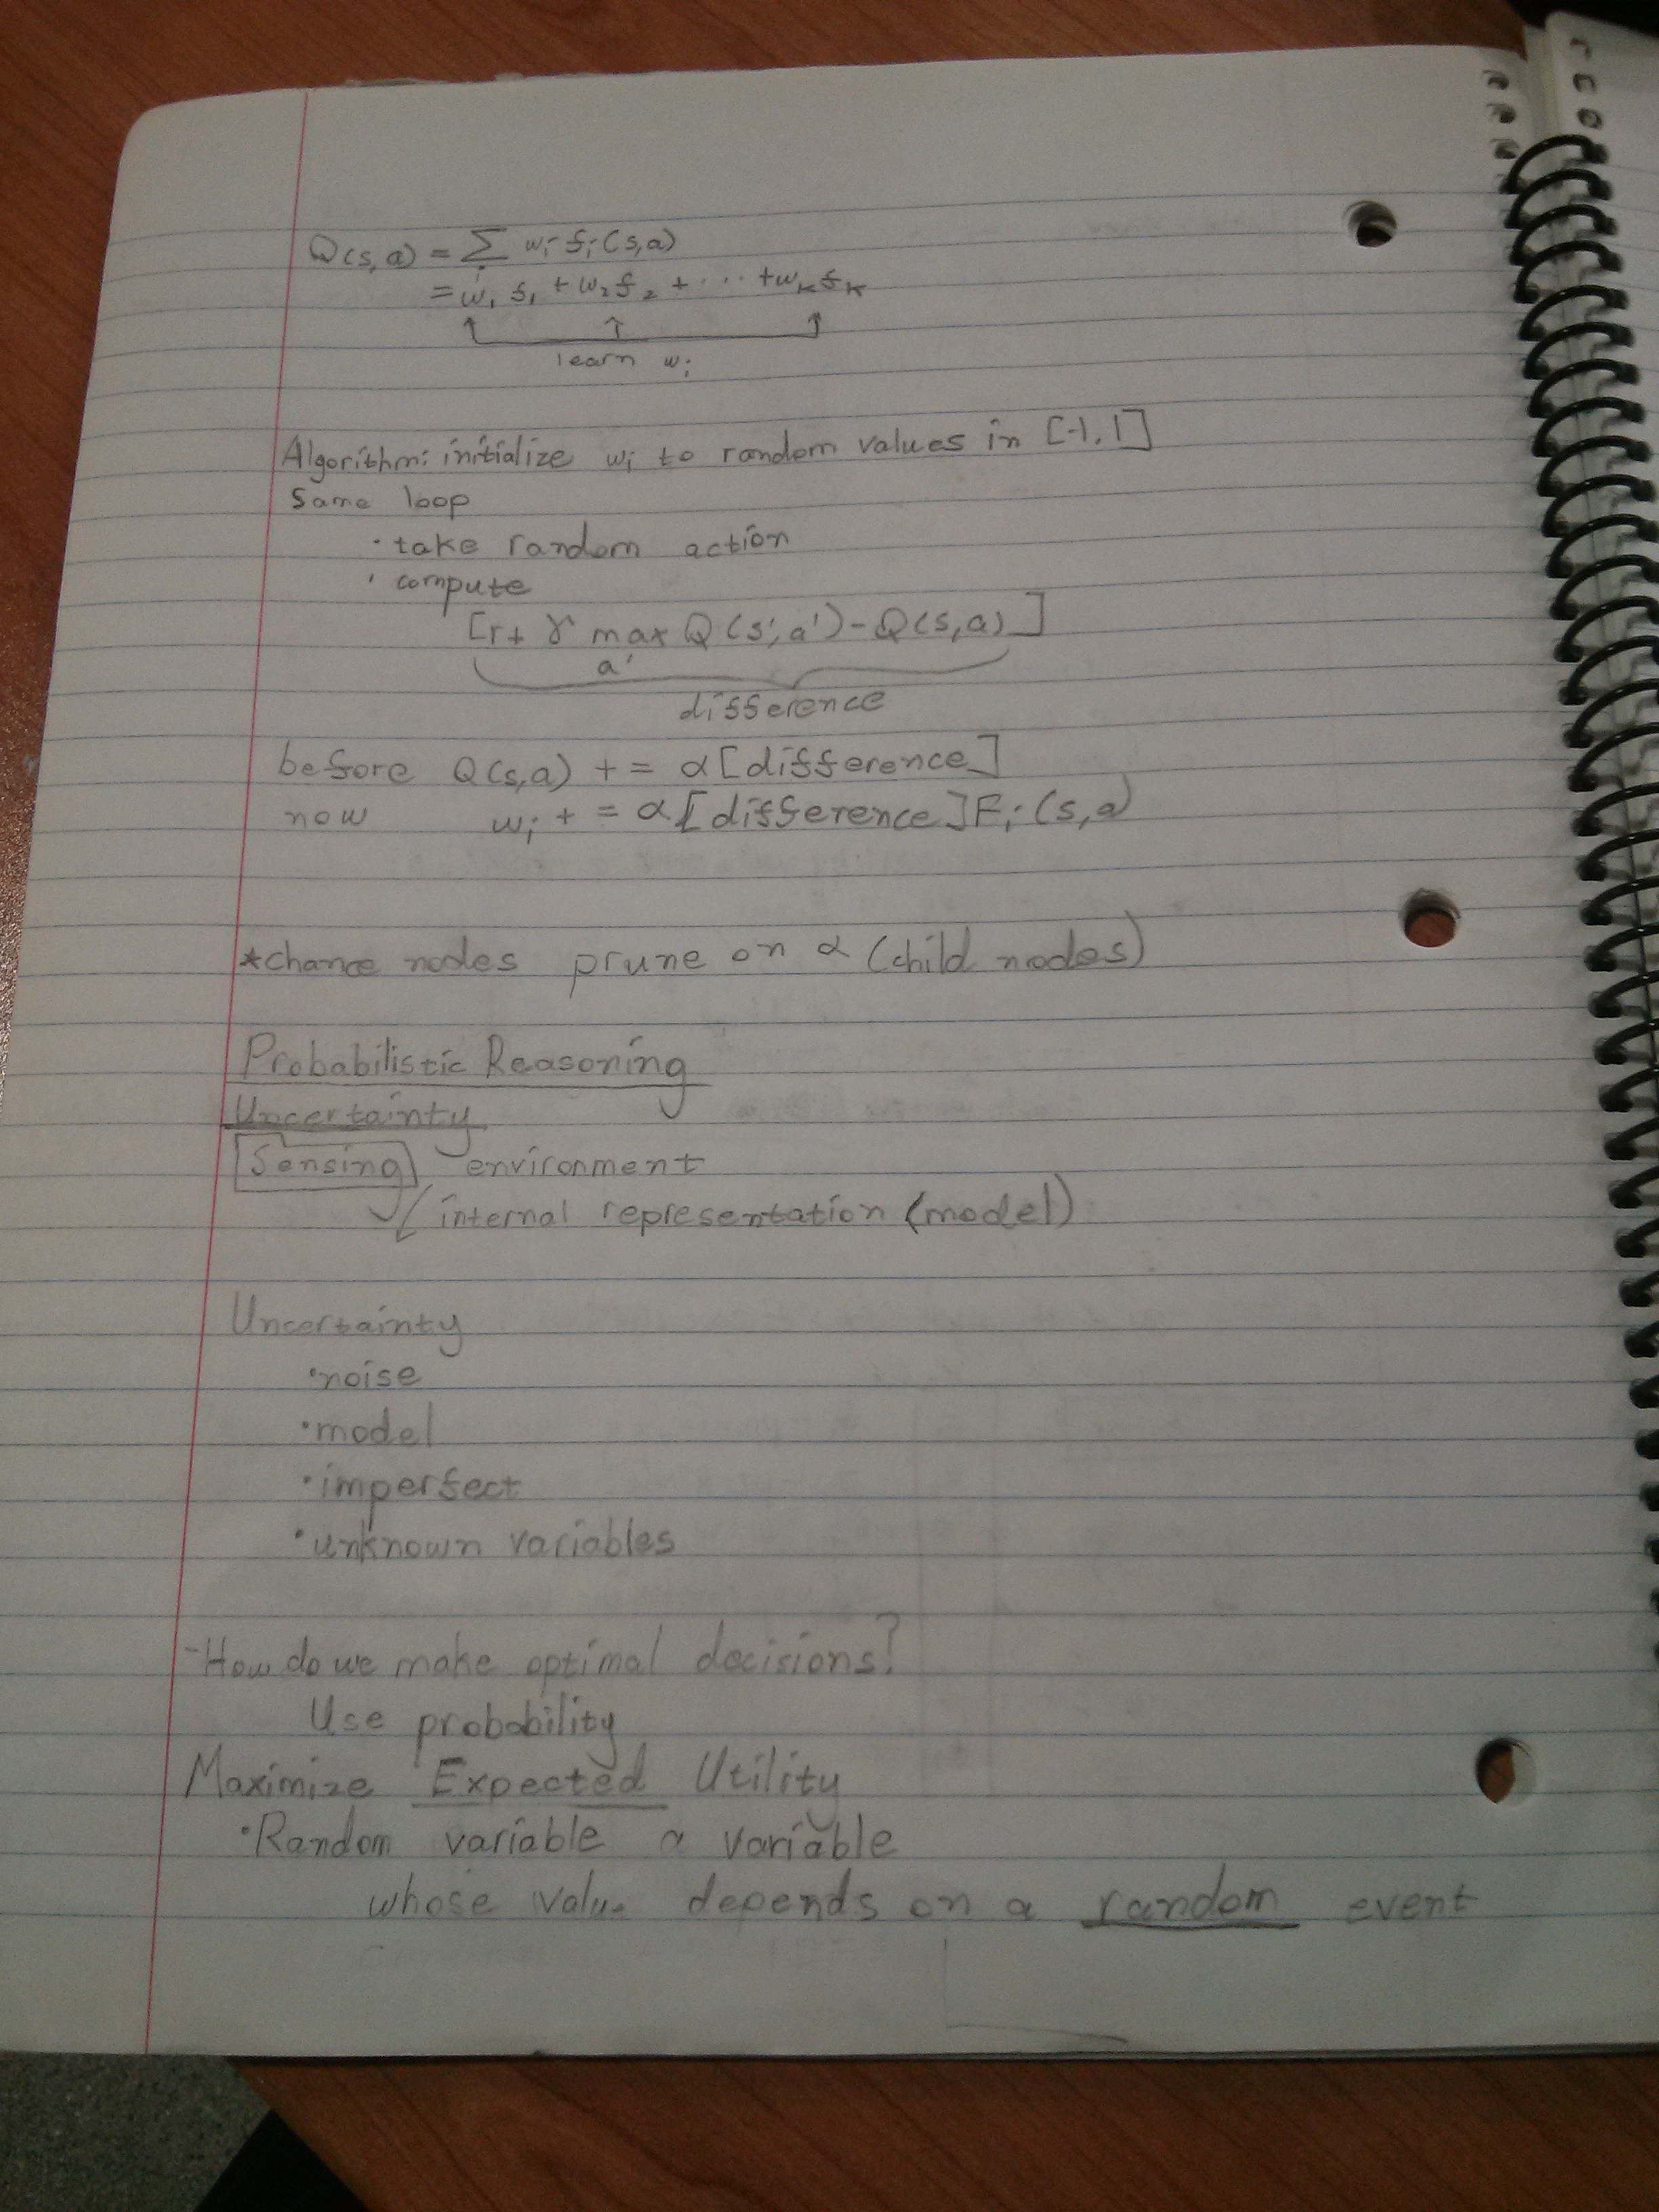 Q(s,a) = Σ wᵢ fᵢ(s,a)
i
= w₁ f₁ + w₂ f₂ + ... + wₖ fₖ
learn wᵢ
Algorithm: initialize wᵢ to random values in [-1, 1]
Same loop
· take random action
· compute
[r + γ max Q(s', a') - Q(s,a)]
a'
difference
before Q(s,a) += α[difference]
now wᵢ += α[difference]Fᵢ(s,a)
*chance nodes prune on α (child nodes)
Probabilistic Reasoning
Uncertainty
Sensing environment
internal representation (model)
Uncertainty
·noise
·model
·imperfect
·unknown variables
-How do we make optimal decisions?
Use probability
Maximize Expected Utility
·Random variable a variable
whose value depends on a random event